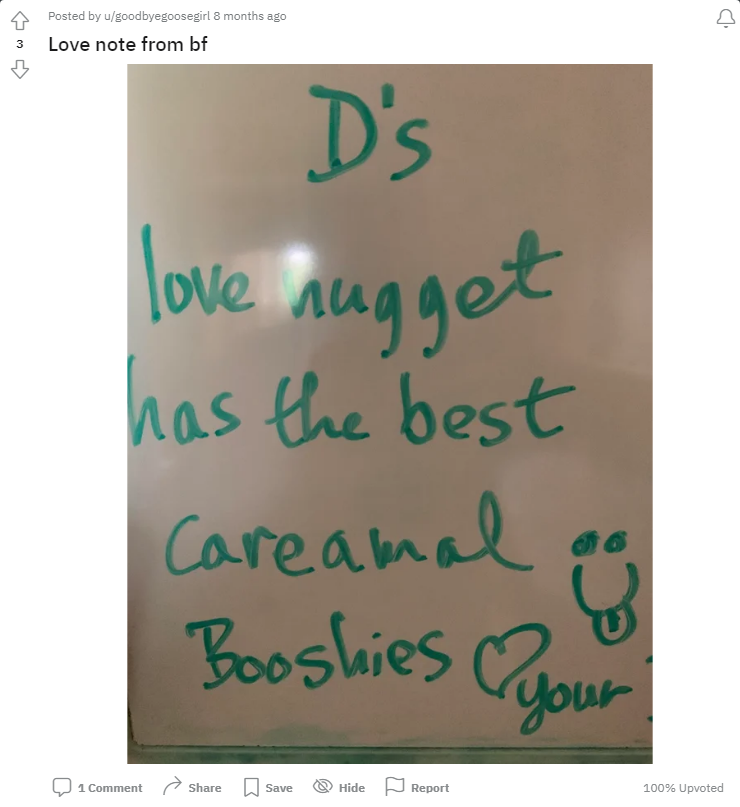 Posted by u/goodbyegoosegirl 8 months ago
3
Love note from bf
D's
love nugget
has the best
Careamal
Booshies
your
1 Comment Share Save Hide Report 100% Upvoted